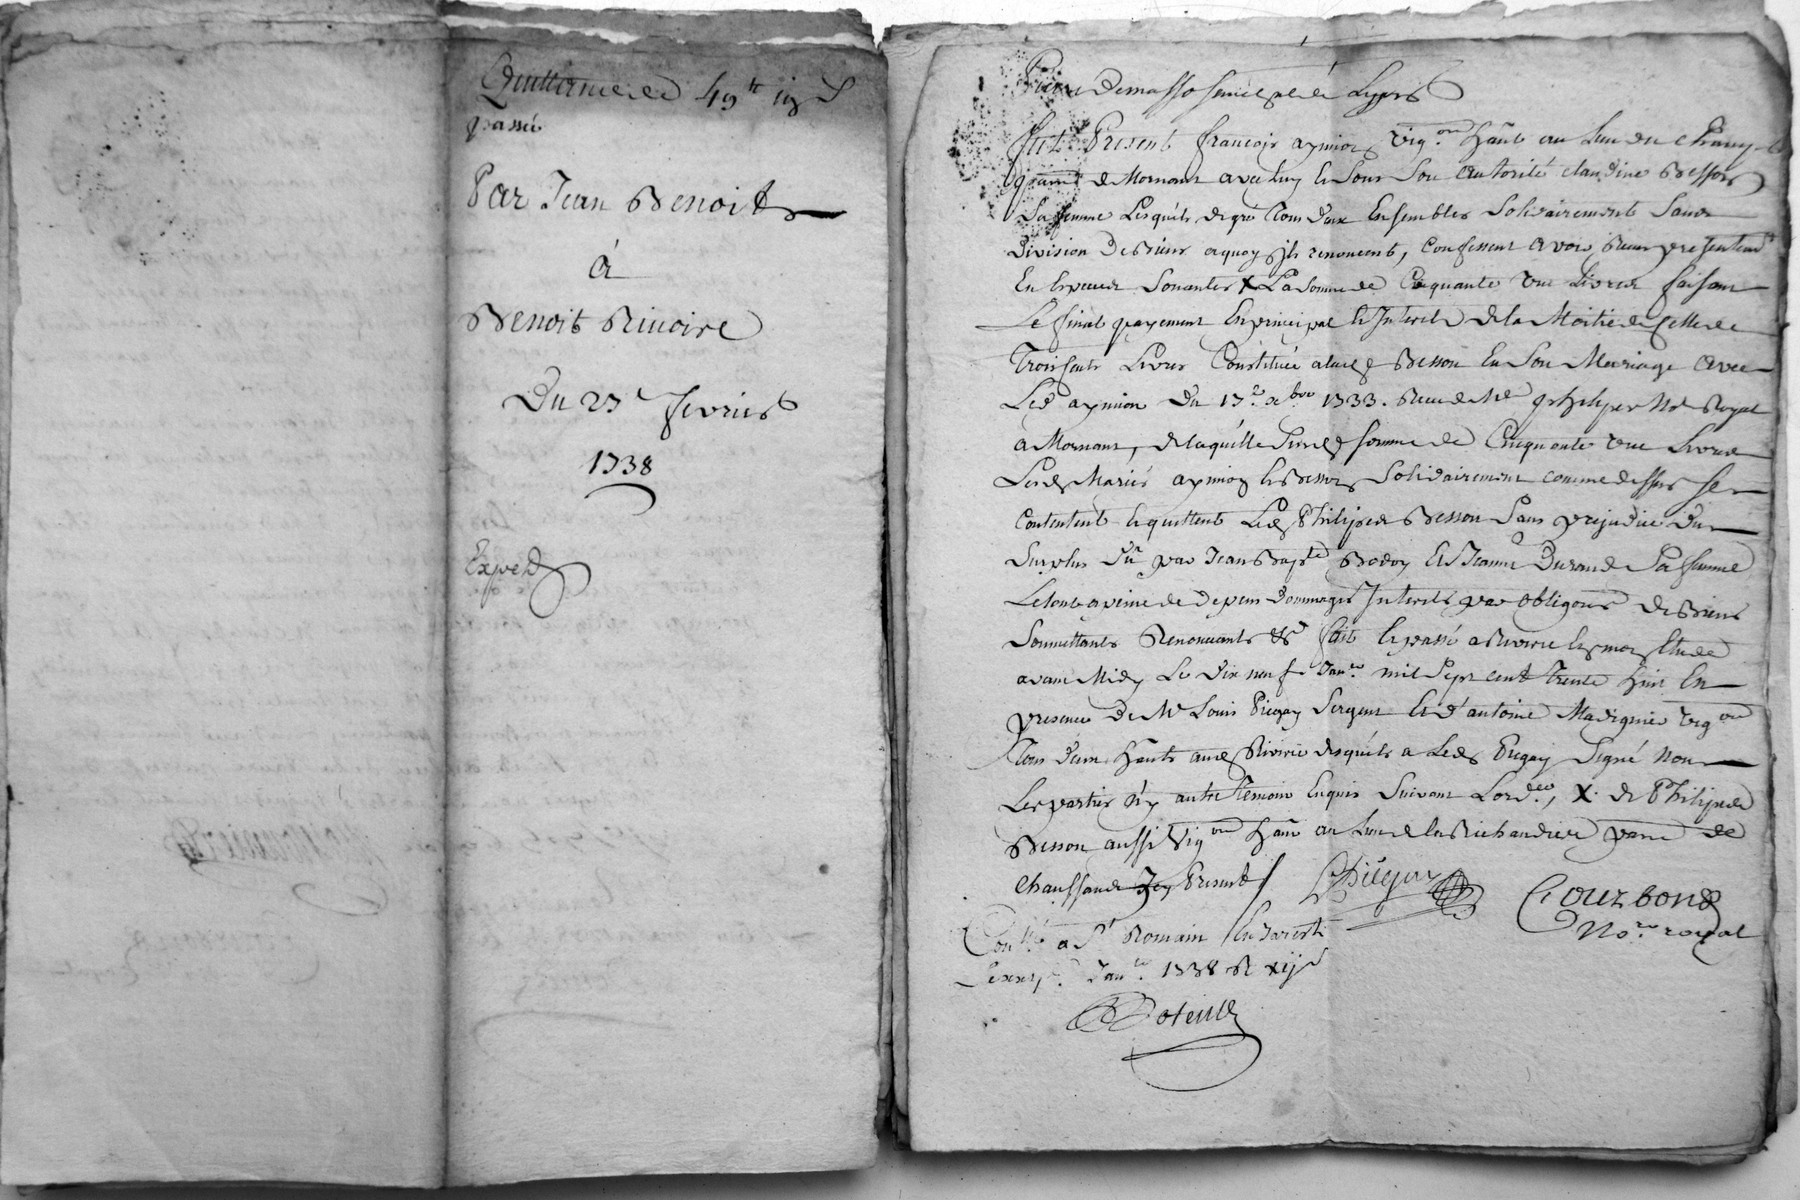 Quittance de 49 tt 19 s
passée
Par Jean Benoit
à
Benoit Rivoire
Du 27e fevrier
1738
Exped
fut Present francois aymion vig.on hant au Lieu de
de Mornant avec luy et sous son autorité claudine Besson
Sa femme Lesquels de gré tous deux Ensembles Solidairement Sans
division De Biens aquoy ils renoncent, confessent avoir Receu presentem.t
En Especes Sonantes X La Somme de Cinquante une Livres faisant
Le final payement En principal et Interets de la Moitié de celle de
Trois cents Livres Constituée a lad Besson En Son Mariage avec
Led aymion Du 17e xbre 1733. Receu de Me Not Royal
a Mornant, de laquelle susd somme de Cinquante une Livres
Lesd Mariés aymion et Besson Solidairement comme dessus se
Contentent et quittent Led Philipes Besson Sans prejudice du
Surplus Dû par Jean Bapte Bodoy et Jeanne Durand Sa femme
Le tout a peine de Depens dommages Interets par obligons de Biens
Soumettants Renonceants &c fait et passé a Riverie En mon Etude
avant Midy Le Dix neuf Janv.er mil Sept cent Trente huit En
presence de Mr Louis Piegay Sergent et d'antoine Madignier vig on
Tous deux hants aud Riverie desquels a Led Piegay Signé non
Les parties n'y autre Temoin Enquis Suivant Lord.ce, X. de Philipe
Besson aussi Vig on hant au Lieu de la Richaudiere parre de
Chaussand Icy Present /
LPiégay
Gourbond
No.re royal
Con.llé a St Romain En Jarest
Janv.er 1738 R xij s
Boteille